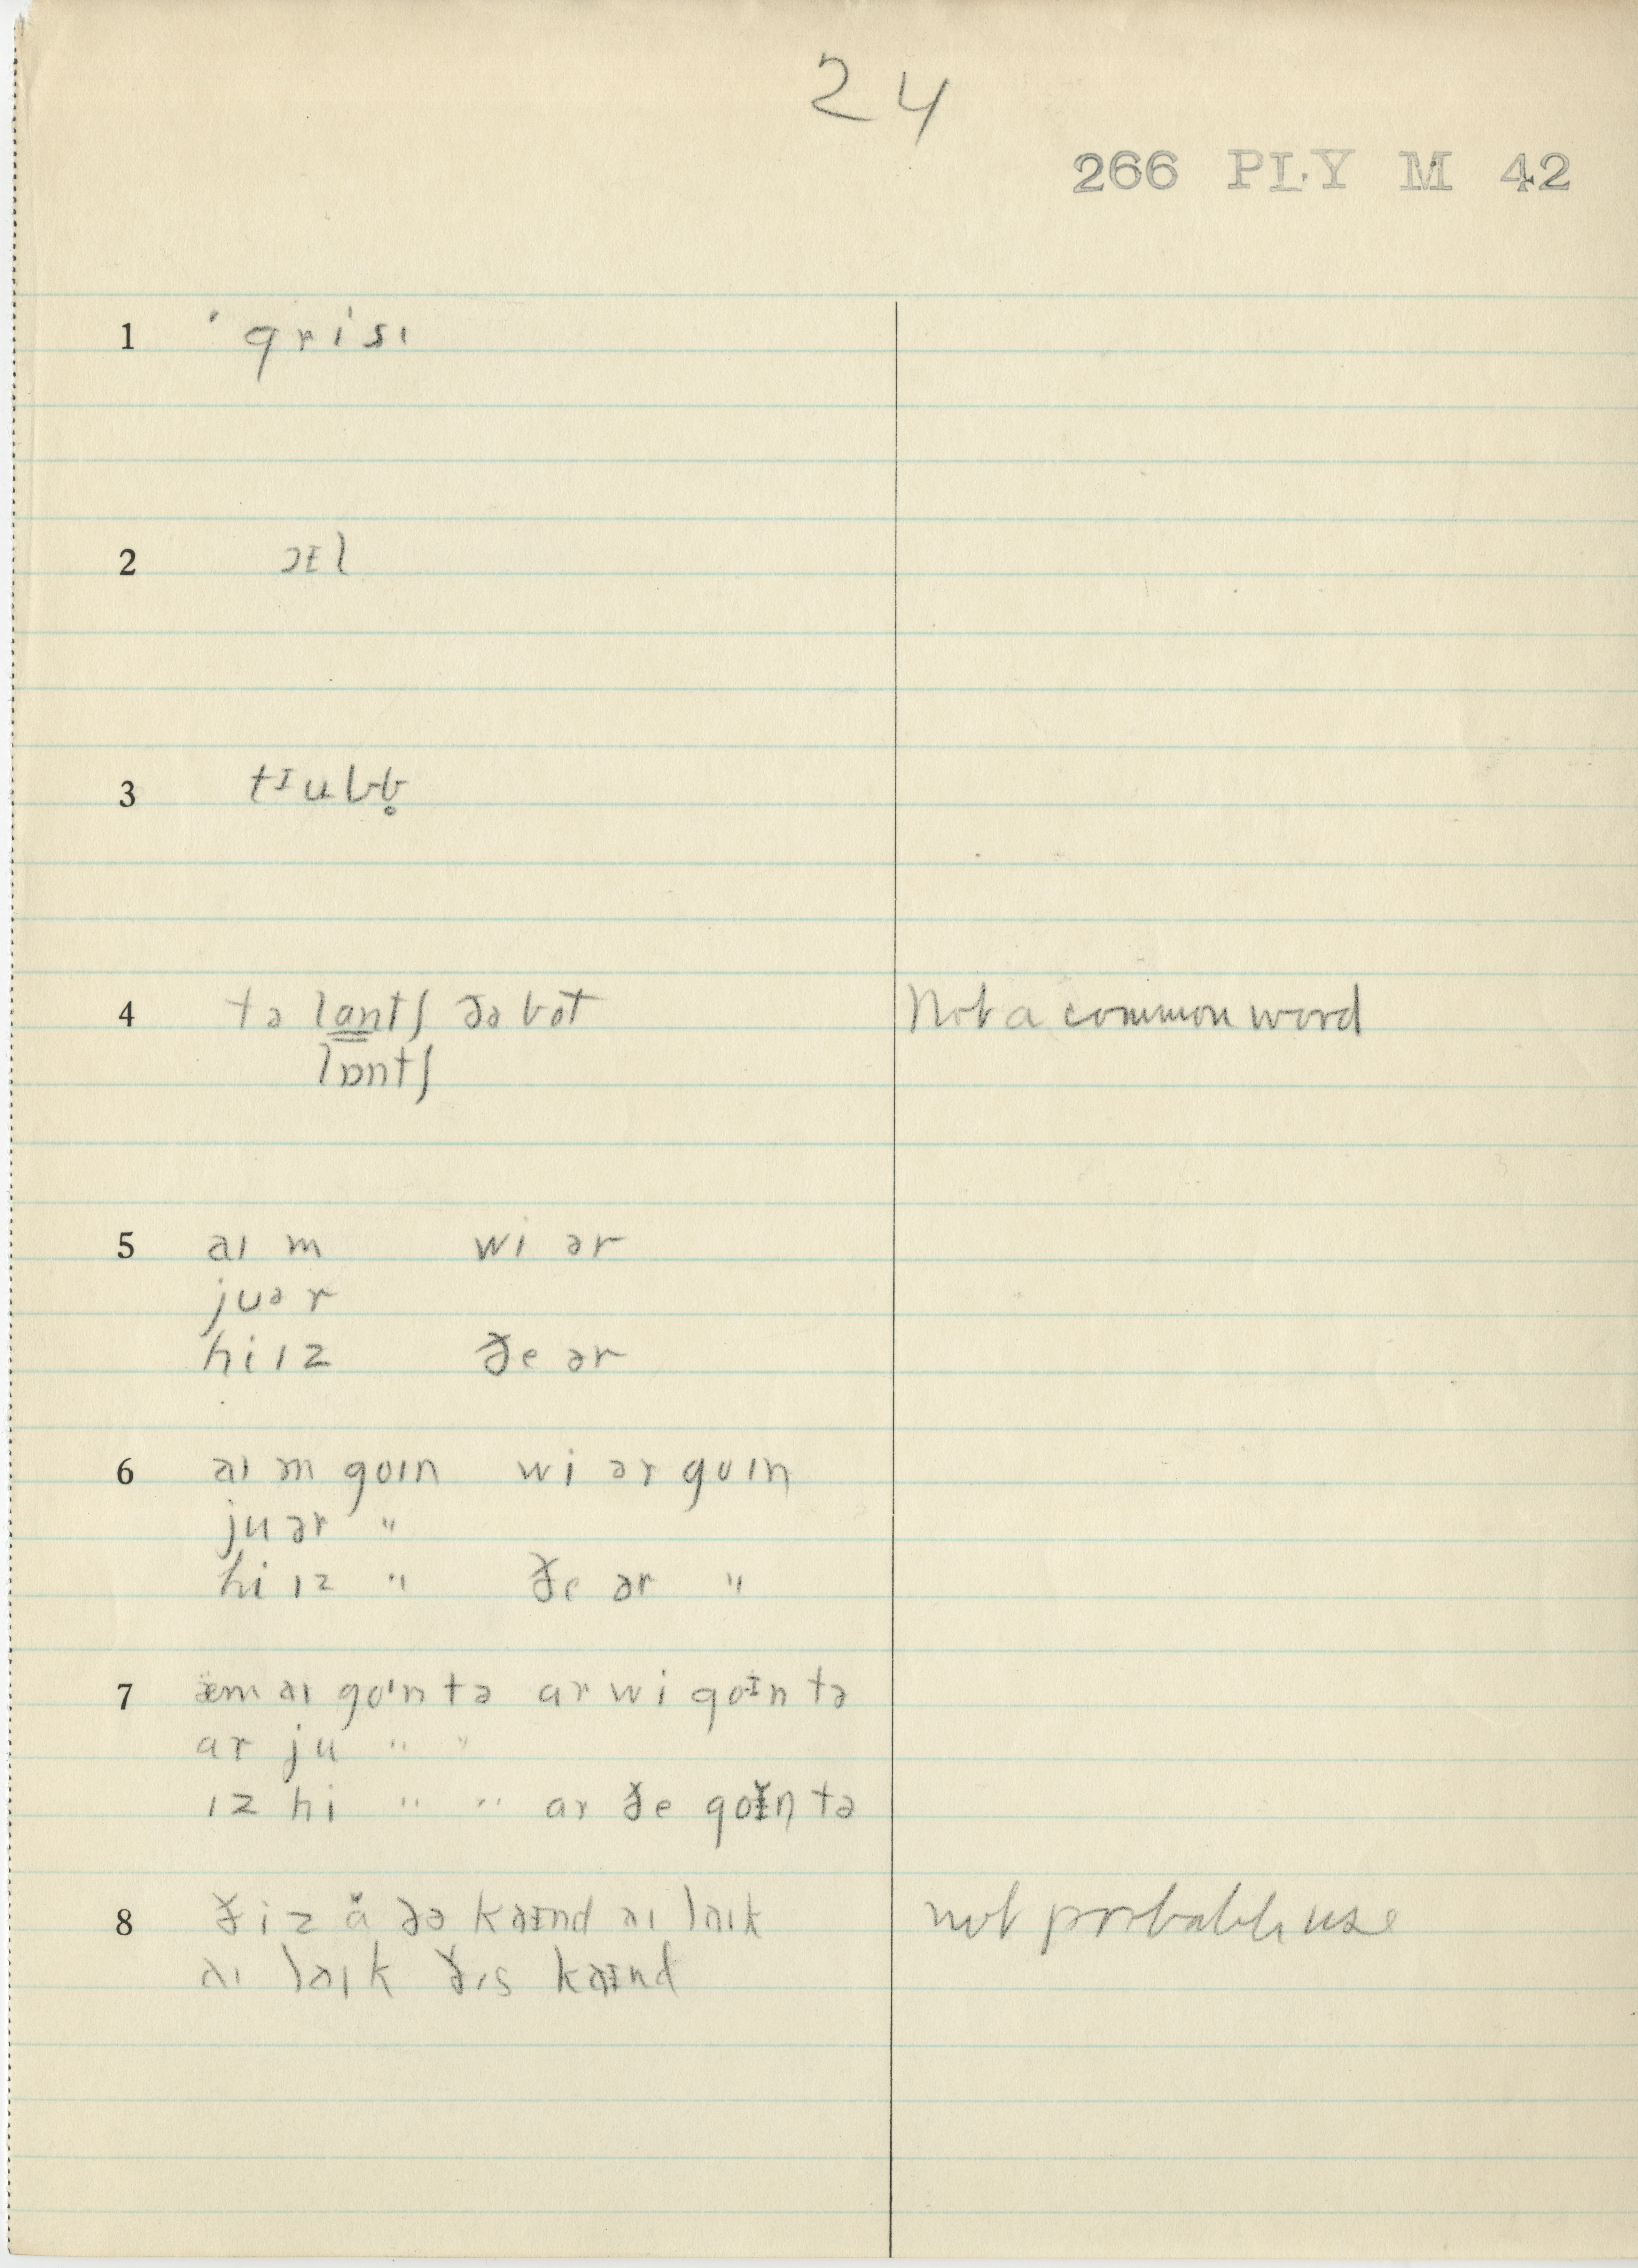 24
266 PLY M 42
1 ˈgrisɪ
2 ɔɪl
3 tɪubb̥
4 tə lantʃ ðə bot Not a common word
lɒntʃ
5 aɪ m wi ər
juər
hi ɪz ðe ər
6 aɪ m goɪn wi ər goɪn
ju ər "
hi ɪz " ðe ər "
7 æm aɪ goɪn tə ar wi goɪn tə
ar ju " "
ɪz hi " " ar ðe goɪn tə
8 ðiz ə ðə kaɪnd aɪ laɪk not probable use
aɪ laɪk ðɪs kaɪnd